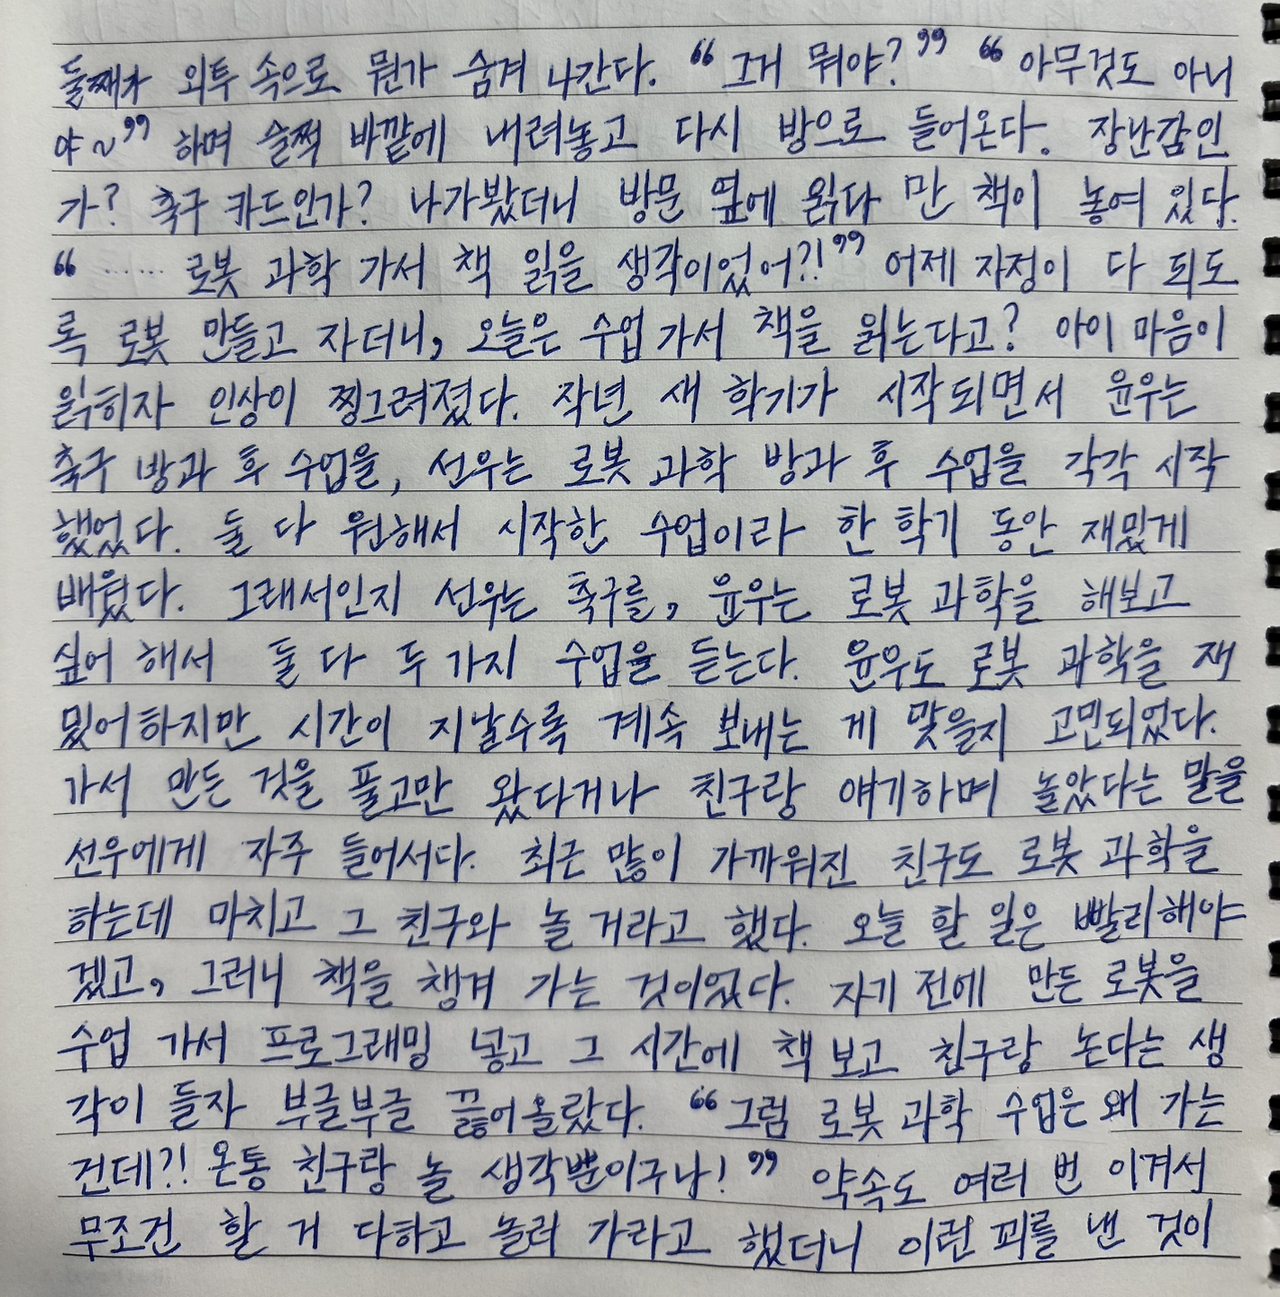 둘째가 외투 속으로 뭔가 숨겨 나간다. “그거 뭐야?” “아무것도 아니
야~” 하며 슬쩍 바깥에 내려놓고 다시 방으로 들어온다. 장난감인
가? 축구 카드인가? 나가봤더니 방문 옆에 읽다 만 책이 놓여 있다.
“ …… 로봇 과학 가서 책 읽을 생각이었어?!” 어제 자정이 다 되도
록 로봇 만들고 자더니, 오늘은 수업 가서 책을 읽는다고? 아이 마음이
읽히자 인상이 찡그려졌다. 작년 새 학기가 시작되면서 윤우는
축구 방과 후 수업을, 선우는 로봇 과학 방과 후 수업을 각각 시작
했었다. 둘 다 원해서 시작한 수업이라 한 학기 동안 재밌게
배웠다. 그래서인지 선우는 축구를, 윤우는 로봇 과학을 해보고
싶어 해서 둘 다 두 가지 수업을 듣는다. 윤우도 로봇 과학을 재
밌어하지만 시간이 지날수록 계속 보내는 게 맞을지 고민되었다.
가서 만든 것을 풀고만 왔다거나 친구랑 얘기하며 놀았다는 말을
선우에게 자주 들어서다. 최근 많이 가까워진 친구도 로봇 과학을
하는데 마치고 그 친구와 놀 거라고 했다. 오늘 할 일은 빨리해야
겠고, 그러니 책을 챙겨 가는 것이었다. 자기 전에 만든 로봇을
수업 가서 프로그래밍 넣고 그 시간에 책 보고 친구랑 논다는 생
각이 들자 부글부글 끓어올랐다. “그럼 로봇 과학 수업은 왜 가는
건데?! 온통 친구랑 놀 생각뿐이구나!” 약속도 여러 번 어겨서
무조건 할 거 다하고 놀러 가라고 했더니 이런 꾀를 낸 것이